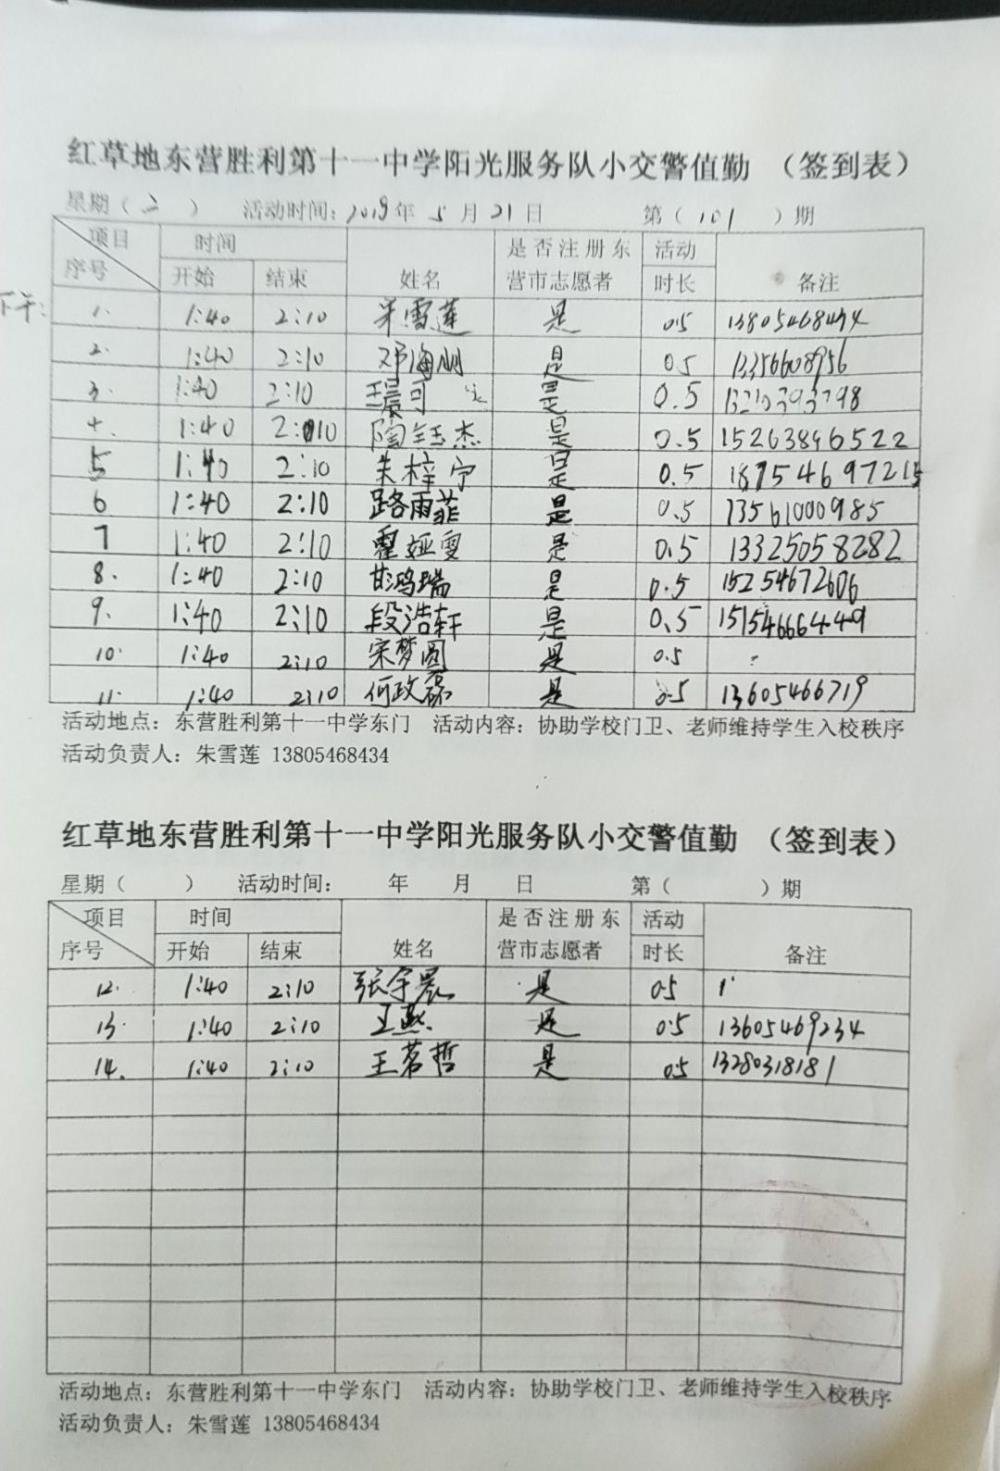 红草地东营胜利第十一中学阳光服务队小交警值勤 （签到表）
星期（ 二 ） 活动时间：2019年 5月 21日 第（ 101 ）期
项目 时间 是否注册东 活动
序号 开始 结束 姓名 营市志愿者 时长 备注
下午：
1. 1:40 2:10 朱雪莲 是 0.5 13805468434
2. 1:40 2:10 邓海朋 是 0.5 13356608956
3. 1:40 2:10 王晨可 是 0.5
4. 1:40 2:10 陶钰杰 是 0.5 15263896522
5 1:40 2:10 朱梓宁 是 0.5 18754697215
6 1:40 2:10 路雨菲 是 0.5 13561000985
7 1:40 2:10 霍娅雯 是 0.5 13325058282
8. 1:40 2:10 彭鸿瑞 是 0.5 15254672606
9. 1:40 2:10 段浩轩 是 0.5 15154666449
10. 1:40 2:10 宋梦圆 是 0.5
11. 1:40 2:10 何政磊 是 0.5 13605466719
活动地点：东营胜利第十一中学东门 活动内容：协助学校门卫、老师维持学生入校秩序
活动负责人：朱雪莲 13805468434
红草地东营胜利第十一中学阳光服务队小交警值勤 （签到表）
星期（ ） 活动时间： 年 月 日 第（ ）期
项目 时间 是否注册东 活动
序号 开始 结束 姓名 营市志愿者 时长 备注
12. 1:40 2:10 张宇晨 是 0.5
13. 1:40 2:10 王熙 是 0.5 13605469234
14. 1:40 2:10 王茗哲 是 0.5 13280318181
活动地点：东营胜利第十一中学东门 活动内容：协助学校门卫、老师维持学生入校秩序
活动负责人：朱雪莲 13805468434